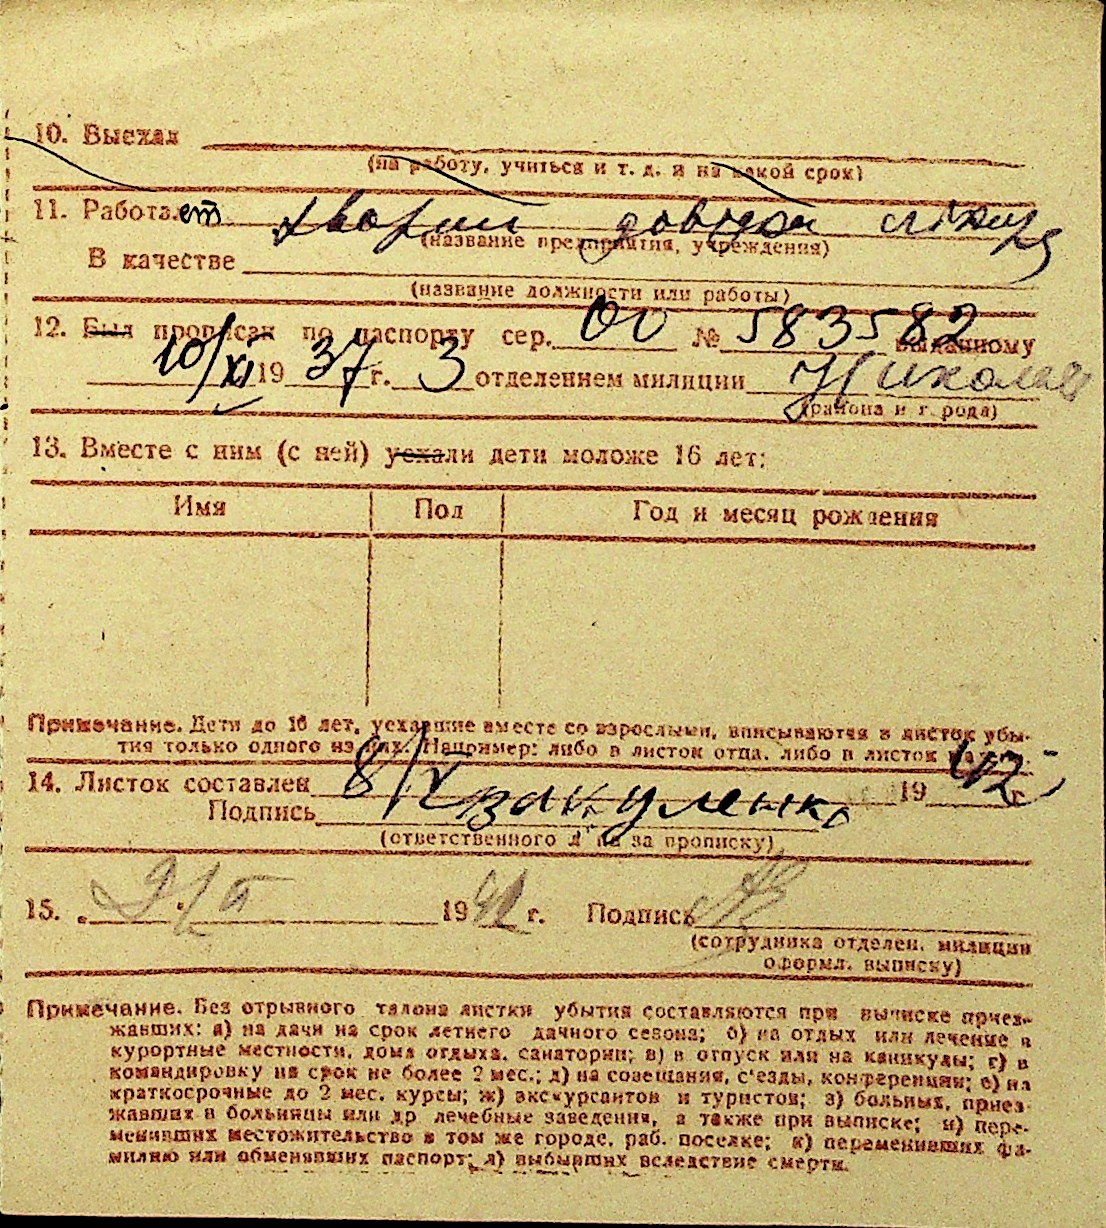 10. Выехал
(на работу, учиться и т. д. и на какой срок)
11. Работает
(название предприятия, учреждения)
В качестве
(название должности или работы)
12. Был прописан по паспорту сер. № 583582 выданному
10/XI 1937 г. 3 отделением милиции Николаев
(района и города)
13. Вместе с ним (с ней) уехали дети моложе 16 лет:
Имя Пол Год и месяц рождения
Примечание. Дети до 16 лет, уехавшие вместе со взрослыми, вписываются в листок убы-
тия только одного из них. Например: либо в листок отца, либо в листок матери.
14. Листок составлен 8/X 1942 г.
Подпись
(ответственного лица за прописку)
15. 19 г. Подпись
(сотрудника отделен. милиции
оформл. выписку)
Примечание. Без отрывного талона листки убытия составляются при выписке приез-
жавших: а) на дачи на срок летнего дачного сезона; б) на отдых или лечение в
курортные местности, дома отдыха, санатории; в) в отпуск или на каникулы; г) в
командировку на срок не более 2 мес.; д) на совещания, с'езды, конференции; е) на
краткосрочные до 2 мес. курсы; ж) экскурсантов и туристов; з) больных, приез-
жавших в больницы или др лечебные заведения, а также при выписке; и) пере-
менивших местожительство в том же городе, раб. поселке; к) переменивших фа-
милию или обменявших паспорт; л) выбывших вследствие смерти.